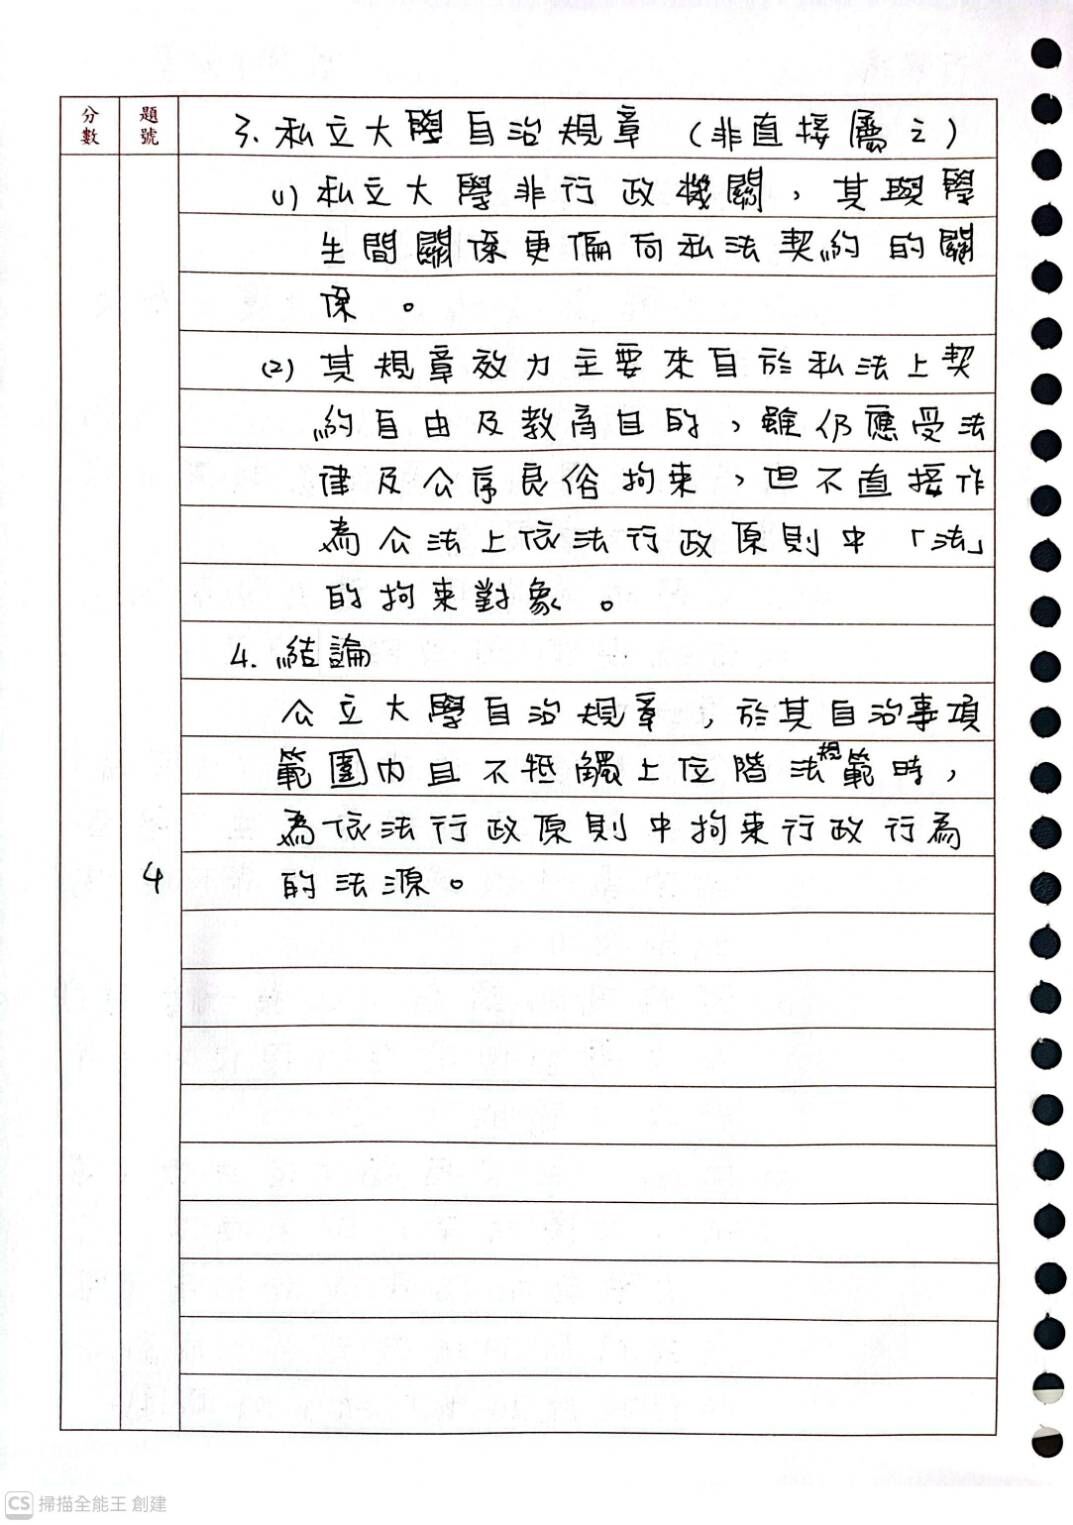 分數 題號 3. 私立大學自治規章（非直接屬之）
(1) 私立大學非行政機關，其與學
生間關係更偏向私法契約的關
係。
(2) 其規章效力主要來自於私法上契
約自由及教育目的，雖仍應受法
律及公序良俗拘束，但不直接作
為公法上依法行政原則中「法」
的拘束對象。
4. 結論
公立大學自治規章，於其自治事項
範圍內且不牴觸上位階法規範時，
為依法行政原則中拘束行政行為
4 的法源。
CS 掃描全能王 創建